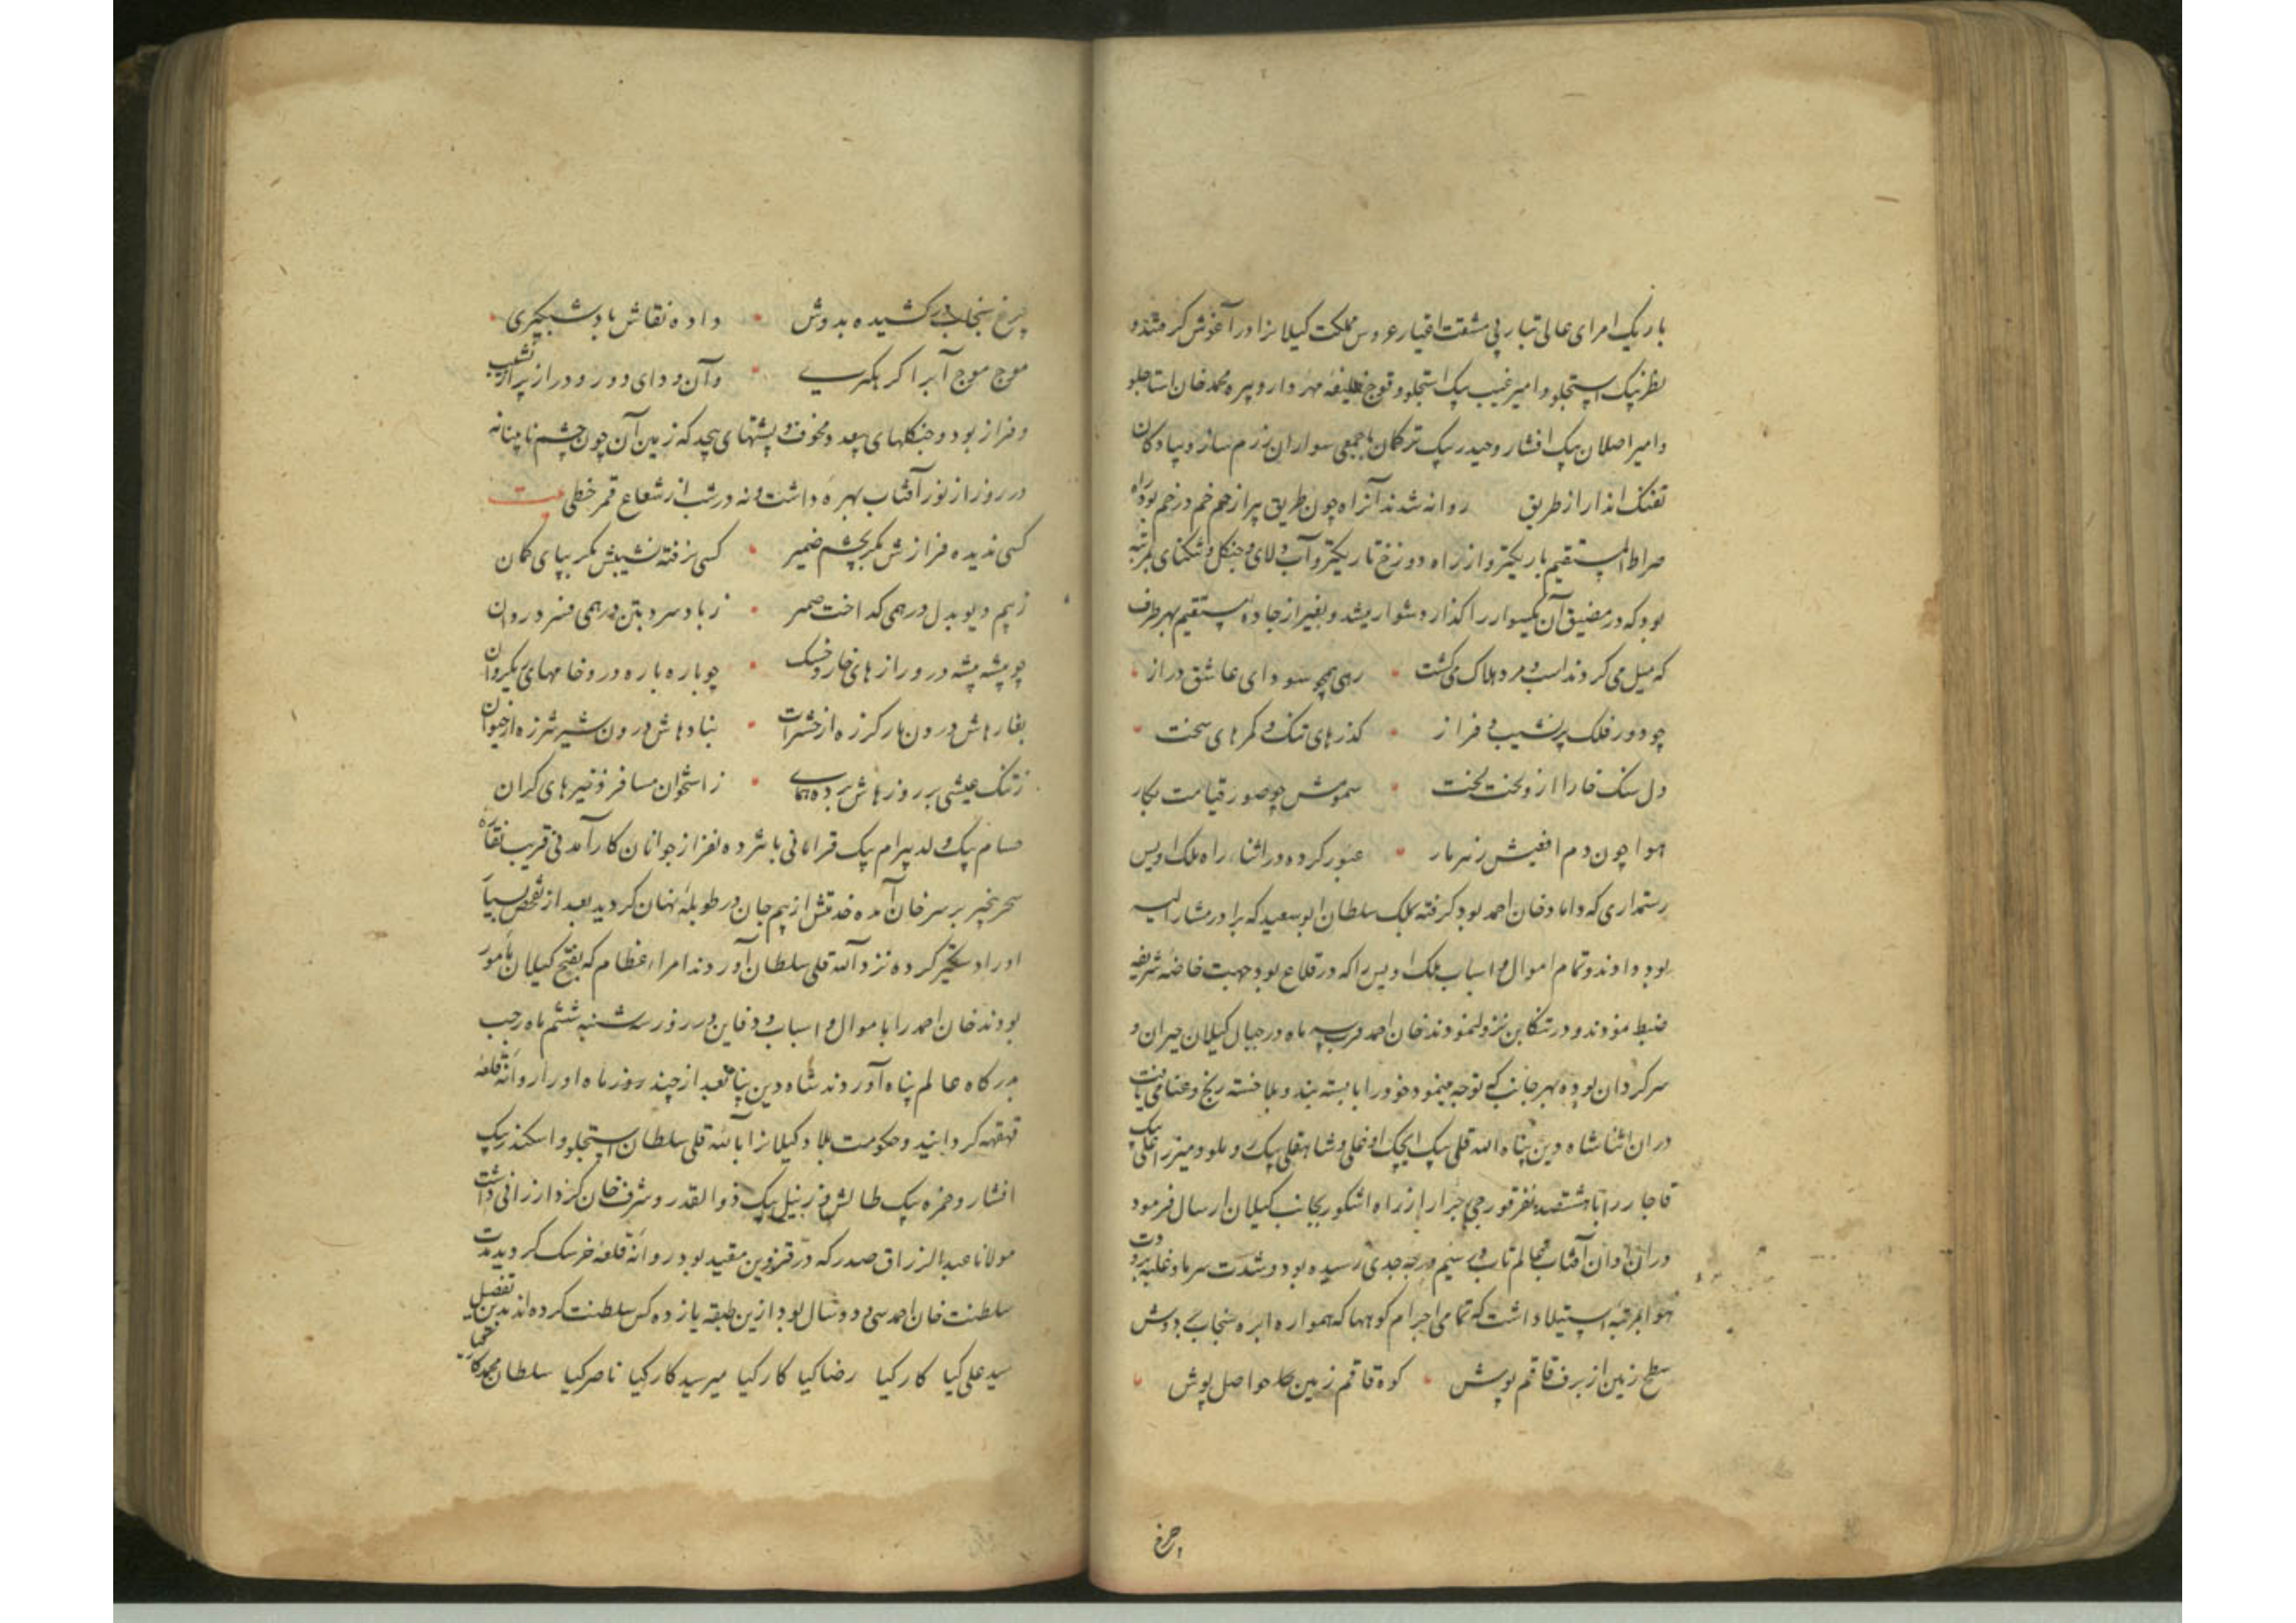 باریک امرای عالی تبار پی مشقت اغیار عروس مملکت کیلانرا در آغوش کرفتند و
نظر بیک استجلو و امیر غیب بیک استجلو و قوج خلیفه مهردار و پیره محمد خان استاجلو
و امیر اصلان بیک افشار و حیدر بیک ترکمان باجمعی سواران رزم ساز و پیادکان
تفنک انداز از طریق روانه شدند آنراه چون طریق پر از خم خم در خم بود راه
صراط المستقیم باریکتر و از راه دوزخ تاریکتر و آب و لای و جنکل و تنکنای بمرتبه
بود که در مضیق آن یکسوار را کذار دشوار میشد و بغیر از جاده مستقیم بهر طرف
که میل می کردند اسب و مرد هلاک می کشت رهی همچو سودای عاشق دراز
چو دور فلک پر نشیب و فراز کذرهای تنک و کمرهای سخت
دل سنک خارا از و لخت لخت سمومش چو صور قیامت بکار
هوا چون دم افعیش زهربار عبور کرده در اثناء راه ملک اویس
رستمداری که داماد خان احمد بود کرفته بملک سلطان ابو سعید که برادر مشار الیه
بود دادند و تمام اموال و اسباب ملک اویس را که در قلاع بود جهت خاصه شریفه
ضبط نمودند و در تنکابن نزول نمودند خان احمد قرب سه ماه در جبال کیلان حیران و
سرکردان بوده بهر جانب که توجه مینمود خود را بابسته بند و بلا خسته رنج و عنا می یافت
در ان اثنا شاه دین پناه الله قلی بیک ایجک اوغلی و شاهقلی بیک و میرزا علی بیک
قاجار را باهشتصد نفر قورجی جرار از راه اشکور بجانب کیلان ارسال فرمود
در ان اوان آفتاب عالم تاب در نیم درجه جدی رسیده بود و شدت سرما و غلبه برودت
هوا بمرتبه استیلا داشت که تمامی اجرام کوهها که همواره ابره سنجابی بدوش
سطح زمین از برف قاقم پوش کوه قاقم زمین حواصل پوش
چرخ
چرخ سنجاب در کشیده بدوش داده نقاش باد شبکیری
موج موج آب را کره کیری و آن وادی دور و دراز پر از نشیب
و فراز بود و جنکلهای بعد و مخوف و پشتهای بیحد که زمین آن چون چشم نابینا نه
در روز از نور آفتاب بهره داشت و نه در شب از شعاع قمر خطی بیت
کسی ندیده فرازش مکر بچشم ضمیر کسی نرفته نشیبش مکر بپای کمان
ز بیم دیو بدل در همی کداخت ضمیر ز باد سرد بتن در همی فسرد روان
چو پشه پشه درو رازهای خار و خسک چو باره باره درو خامهای ریک روان
بغارهاش درون مار کرزه از حشرات بنادهاش درون شیر شرزه از حیوان
ز تنک عیشی بر روزهاش برده همای ز استخوان مسافر ذخیرهای کران
حسام بیک ولد بیرام بیک قرامانی باشرده نفر از جوانان کارآمدنی قریب نقاره
سحر بیخبر بر سر خان آمده خدمتش از بیم جان در طویله نهان کردید بعد از تفحص بسیار
او را دستکیر کرده نزد الله قلی سلطان آوردند امراء عظام که بفتح کیلان مامور
بودند خان احمد را باموال و اسباب و دفاین در روز سه شنبه ششم ماه رجب
بدرکاه عالم پناه آوردند شاه دین پناه بعد از چند روز ماه او را روانه قلعه
قهقهه کردانید و حکومت بلاد کیلانرا بالله قلی سلطان استجلو و اسکندر بیک
افشار و حمزه بیک طالش و زینل بیک ذوالقدر و شرف خان کرد ارزانی داشت
مولانا عبد الرزاق صدر که در قزوین مقید بود روانه قلعه خرسک کردید مدت
سلطنت خان احمد سی و دو سال بود ازین طبقه یازده کس سلطنت کرده اند بدین تفصیل
سید علی کیا کارکیا رضا کیا کارکیا میر سید کارکیا ناصر کیا سلطان محمد کارکیا